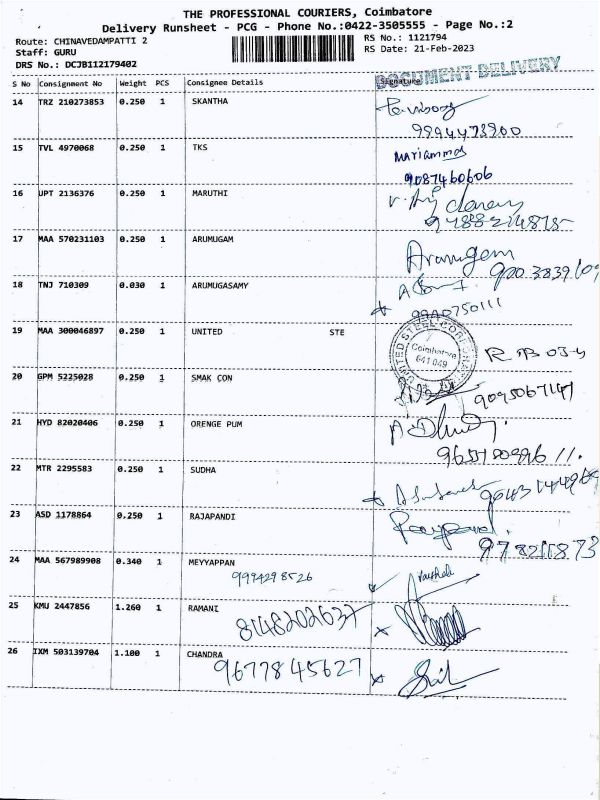 THE PROFESSIONAL COURIERS, Coimbatore
Delivery Runsheet - PCG - Phone No.:0422-3505555 - Page No.:2
Route: CHINAVEDAMPATTI 2 RS No.: 1121794
Staff: GURU RS Date: 21-Feb-2023
DRS No.: DCJB112179402
DOCUMENT DELIVERY
S No Consignment No Weight PCS Consignee Details Signature
14 TRZ 210273853 0.250 1 SKANTHA
9994473900
15 TVL 4970068 0.250 1 TKS Mariammal
9087460606
16 UPT 2136376 0.250 1 MARUTHI
17 MAA 570231103 0.250 1 ARUMUGAM Arumugam
18 TNJ 710309 0.030 1 ARUMUGASAMY
9940750111
19 MAA 300046897 0.250 1 UNITED STE
UNITED STEEL CORPORATION
Coimbatore
641 049
20 GPM 5225028 0.250 1 SMAK CON
21 HYD 82020406 0.250 1 ORENGE PUM
22 MTR 2295583 0.250 1 SUDHA
23 ASD 1178864 0.250 1 RAJAPANDI
24 MAA 567989908 0.340 1 MEYYAPPAN
9994298526
25 KMU 2447856 1.260 1 RAMANI
8148202637
26 IXM 503139704 1.100 1 CHANDRA
9677845627